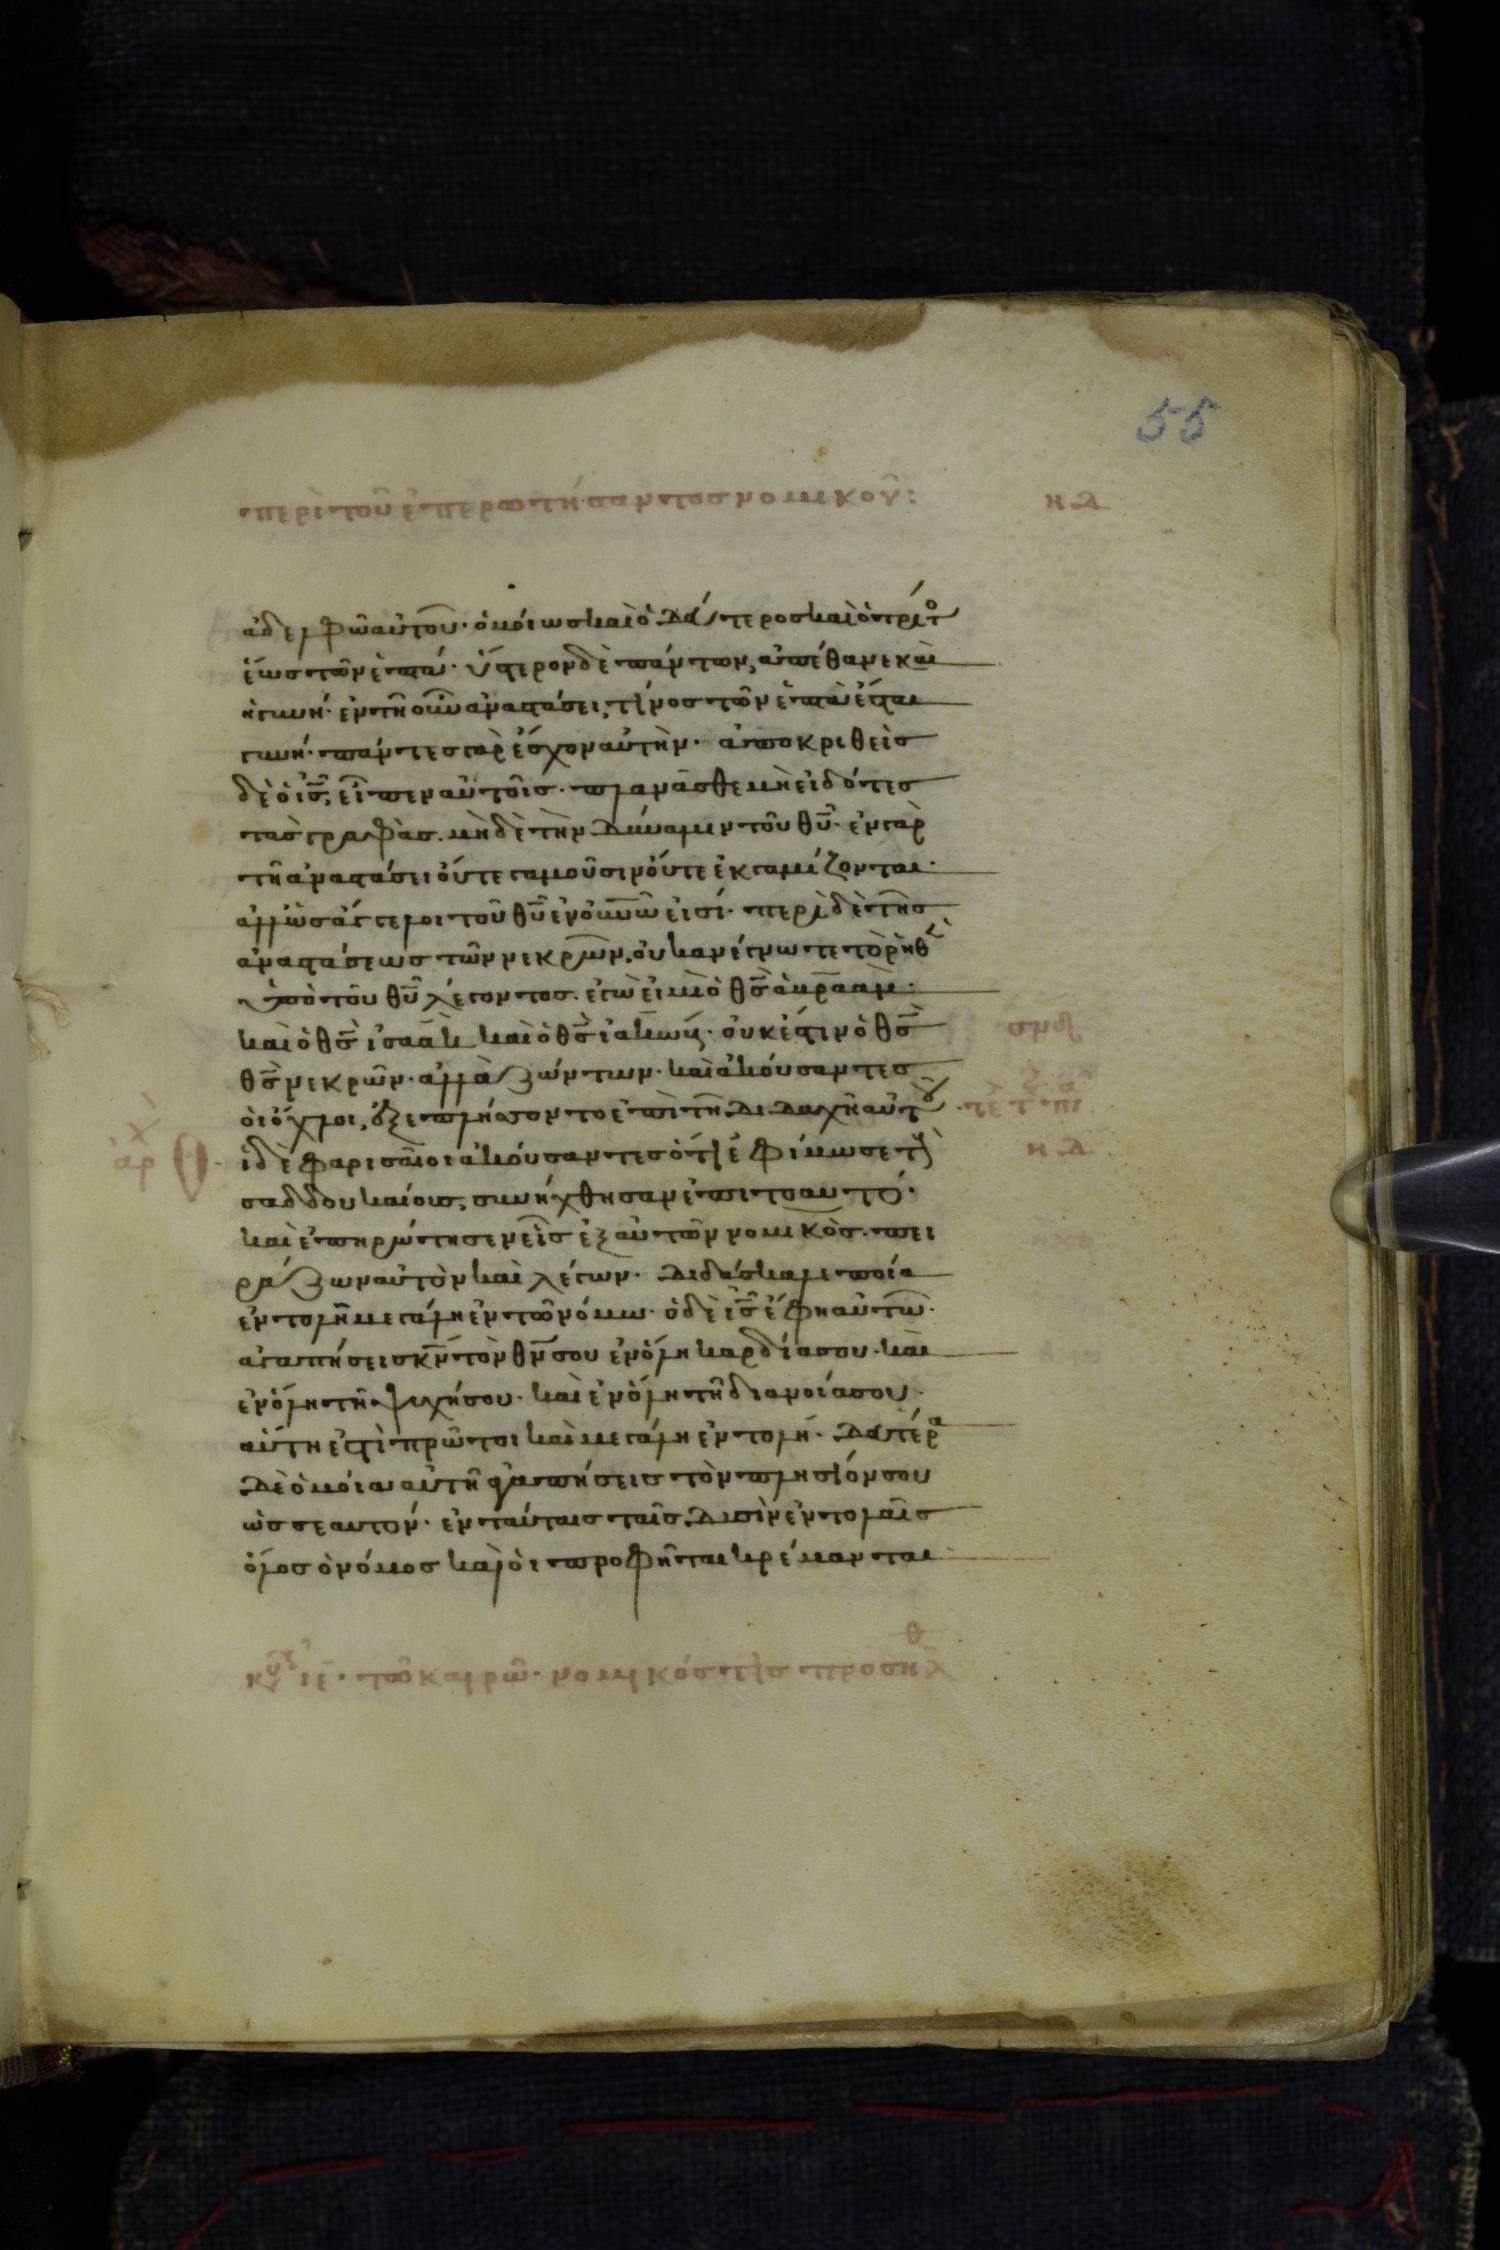 55
περὶ τοῦ ἐπερωτήσαντος νομικοῦ:
ἀδελφῶ αὐτοῦ· ὁμοίως καὶ ὁ δεύτερος καὶ ὁ τρίτο
ἕως τῶν ἑπτά· ὕστερον δὲ πάντων, ἀπέθανε καὶ
ἡ γυνή· ἐν τῆ οὖν ἀναστάσει, τίνος τῶν ἑπτὰ ἔσται
γυνή· πάντες γὰρ ἔσχον αὐτὴν· ἀποκριθεὶς
δὲ ὁ ις, εἶπεν αὐτοῖς· πλανᾶσθε μὴ εἰδότες
τὰς γραφὰς. μὴ δὲ τὴν δύναμιν τοῦ θυ· ἐν γὰρ
τῆ ἀναστάσει οὔτε γαμοῦσιν οὔτε ἐκγαμίζονται·
ἀλλ' ὡς ἄγγελοι τοῦ θυ ἐν οὐνω εἰσί· περὶ δὲ τῆς
ἀναστάσεως τῶν νεκρῶν. οὐκ ἀνέγνωτε τὸ ρηθὲ
ὑπὸ τοῦ θυ λέγοντος. ἐγὼ εἰμὶ ὁ θς ἀβρααμ·
καὶ ὁ θς ἰσαακ καὶ ὁ θς ἰακώβ· οὐκ ἔστιν ὁ θς
θς νεκρῶν· ἀλλὰ ζώντων· καὶ ἀκούσαντες
οἱ ὄχλοι, ἐξεπλήσσοντο ἐπὶ τῆ διδαχῆ αὐτου
ἱ δὲ φαρισαῖοι ἀκούσαντες ὅτι ἐφίμωσε τοὺ
σαδδουκαίους, συνήχθησαν ἐπι τοαυτό·
καὶ ἐπηρώτησεν εἷς ἐξ αὐτῶν νομικὸς. πει
ράζων αὐτὸν καὶ λέγων· διδάσκαλε ποία
ἐντολὴ μεγάλη ἐν τῶ νόμω· ὁ δὲ ις ἔφη αὐτῶ·
ἀγαπήσεις κν τὸν θν σου ἐν ὅλη καρδία σου· καὶ
ἐν ὅλη τῆ ψυχή σου· καὶ ἐν ὅλη τῆ διανοία σου·
αὕτη ἐστὶ πρῶτοι καὶ μεγάλη ἐντολή· δευτέρα
δὲ ὁμοία αὐτῆ ἀγαπήσεις τὸν πλησίον σου
ὡς σεαυτόν· ἐν ταύταις ταῖς δυσὶν ἐντολαῖς
ὅλος ὁ νόμος καὶ οἱ προφῆται κρέμανται